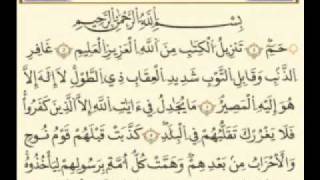 بِسْمِ ٱللَّهِ ٱلرَّحْمَٰنِ ٱلرَّحِيمِ
حمٓ ۝١ تَنزِيلُ ٱلْكِتَٰبِ مِنَ ٱللَّهِ ٱلْعَزِيزِ ٱلْعَلِيمِ ۝٢ غَافِرِ
ٱلذَّنۢبِ وَقَابِلِ ٱلتَّوْبِ شَدِيدِ ٱلْعِقَابِ ذِى ٱلطَّوْلِ لَآ إِلَٰهَ إِلَّا
هُوَ إِلَيْهِ ٱلْمَصِيرُ ۝٣ مَا يُجَٰدِلُ فِىٓ ءَايَٰتِ ٱللَّهِ إِلَّا ٱلَّذِينَ كَفَرُوا۟
فَلَا يَغْرُرْكَ تَقَلُّبُهُمْ فِى ٱلْبِلَٰدِ ۝٤ كَذَّبَتْ قَبْلَهُمْ قَوْمُ نُوحٍ
وَٱلْأَحْزَابُ مِنۢ بَعْدِهِمْ وَهَمَّتْ كُلُّ أُمَّةٍۭ بِرَسُولِهِمْ لِيَأْخُذُوهُ